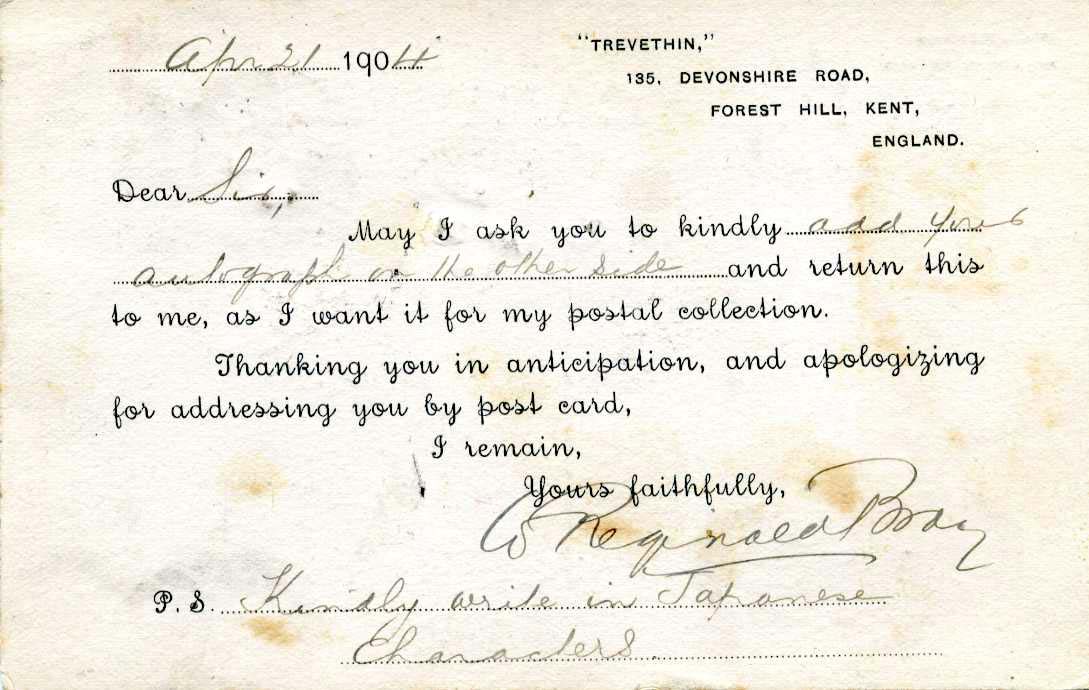 Apr 21 1904
"TREVETHIN,"
135, DEVONSHIRE ROAD,
FOREST HILL, KENT,
ENGLAND.
Dear Sir,
May I ask you to kindly add your
autograph on the other side and return this
to me, as I want it for my postal collection.
Thanking you in anticipation, and apologizing
for addressing you by post card,
I remain,
Yours faithfully,
W Reginald Bray
P. S. Kindly write in Japanese
Characters.